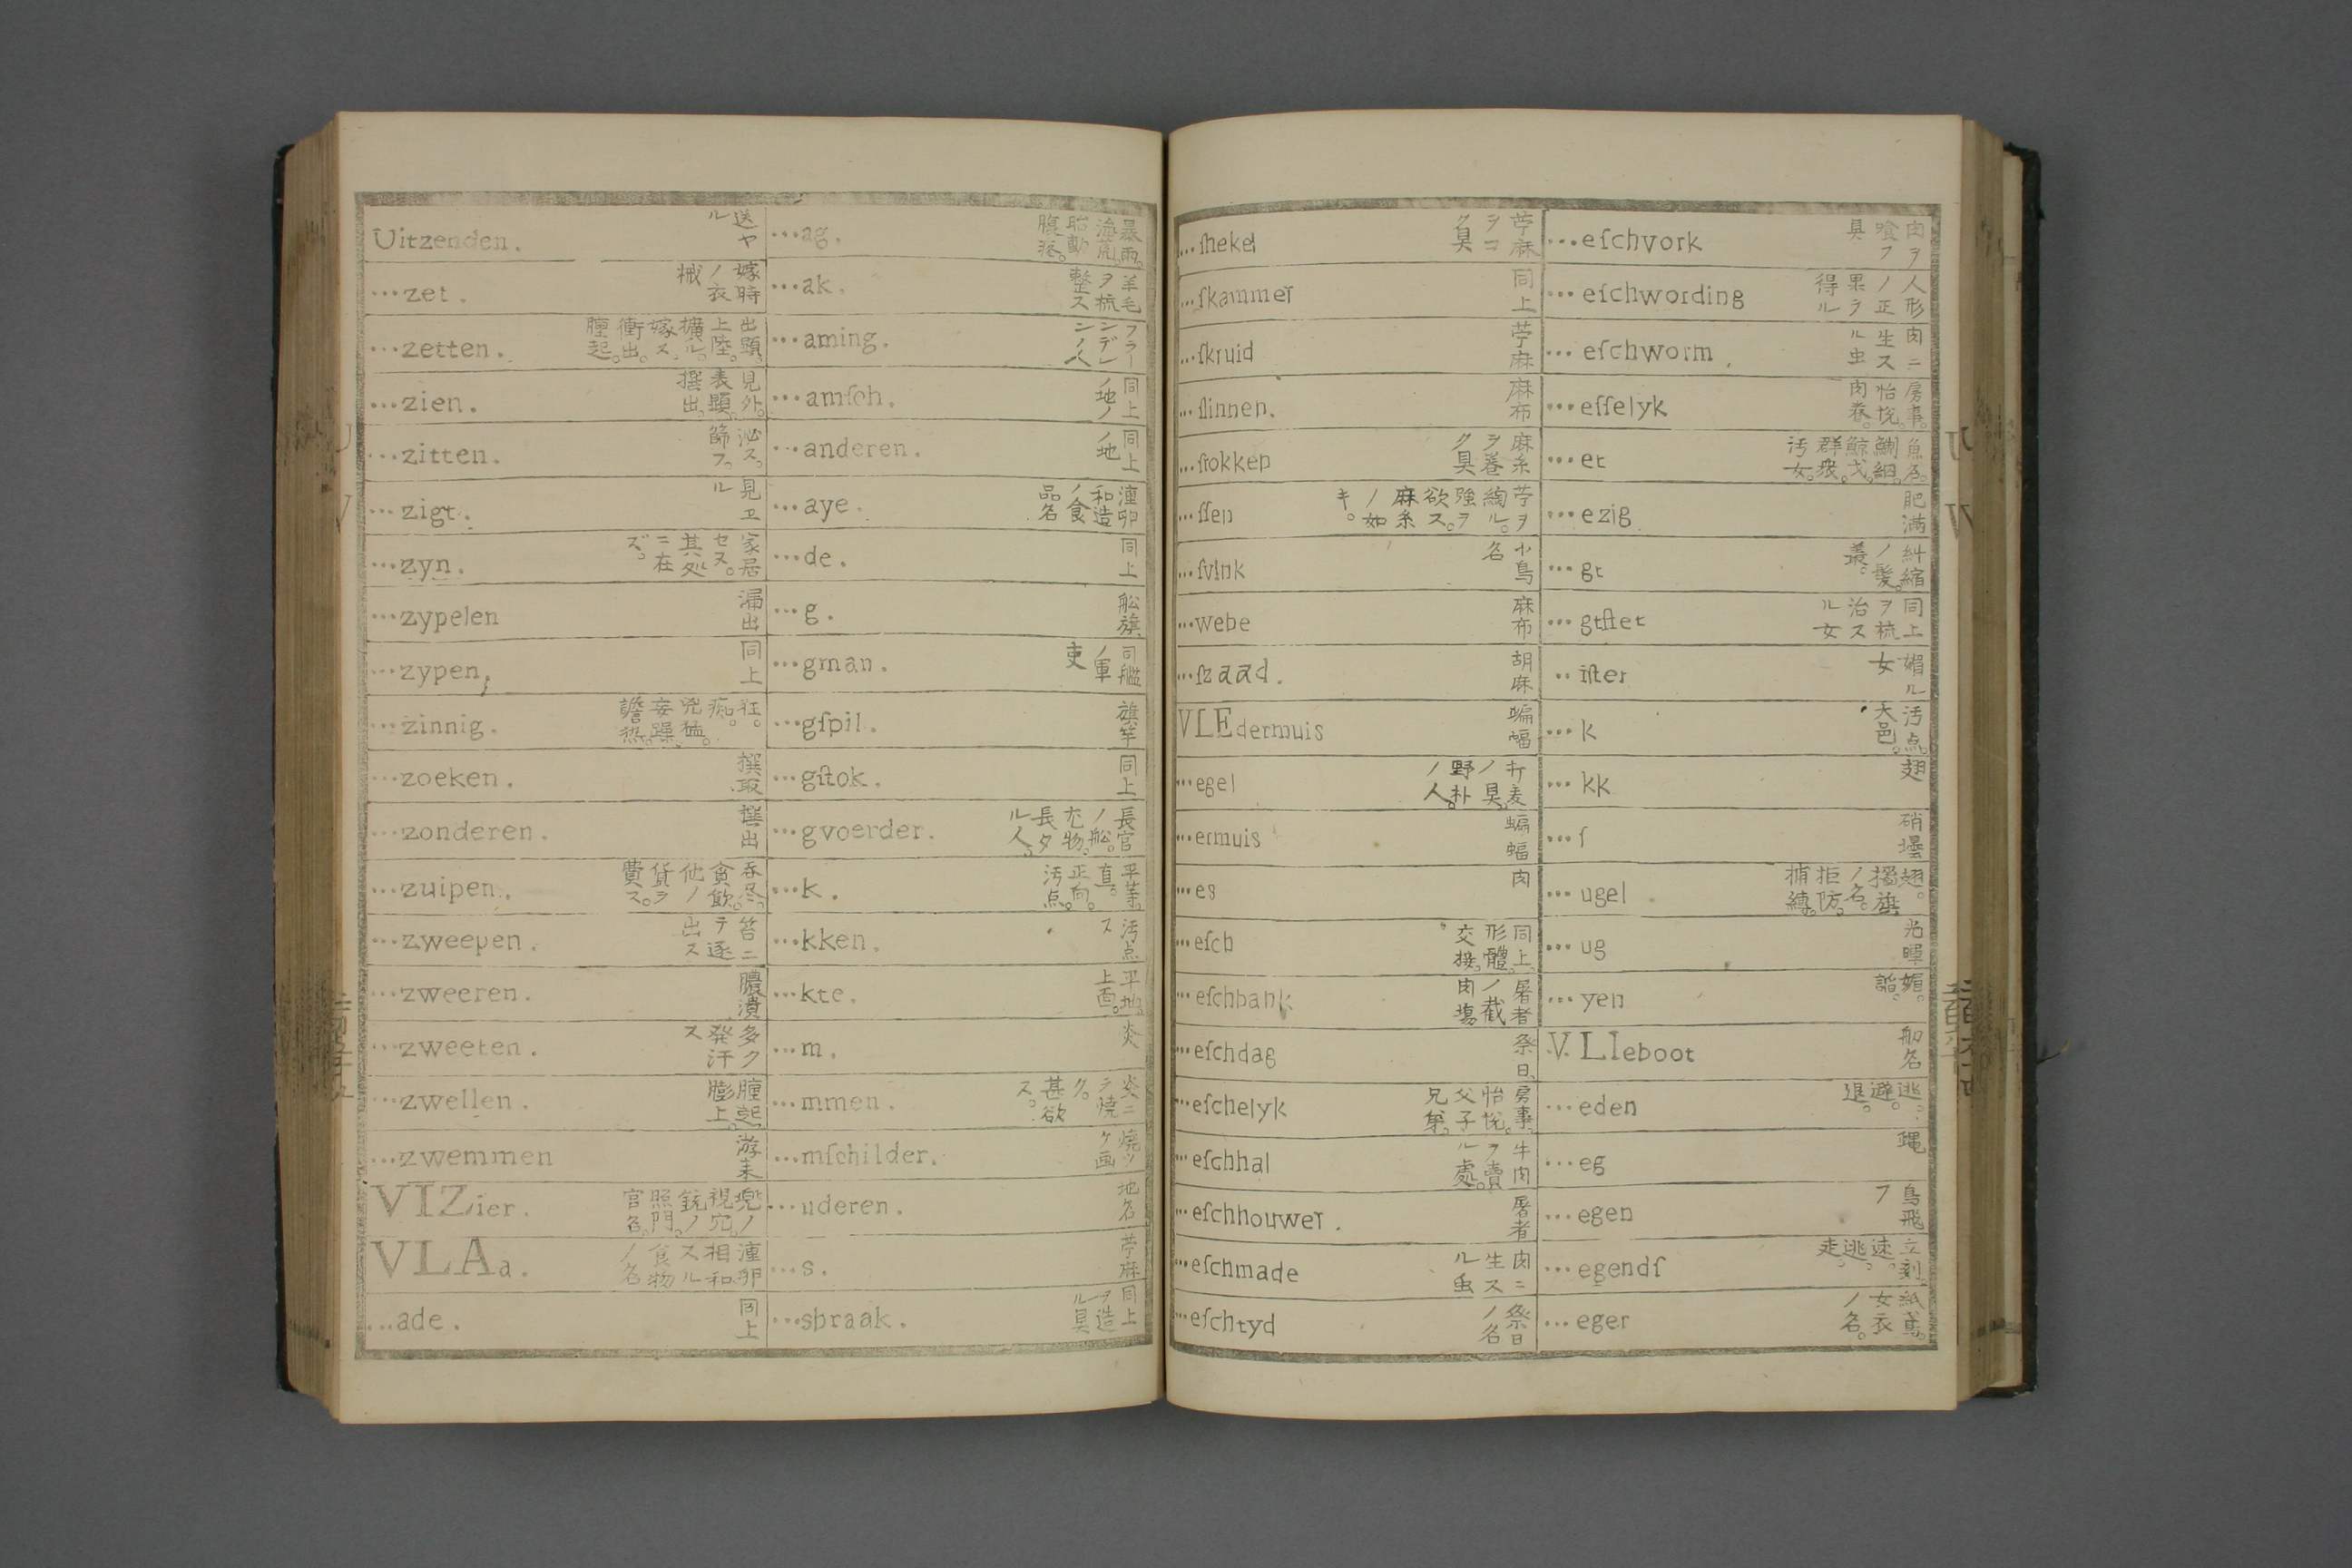 Uitzenden. 送ヤル
...zet. 嫁時ノ衣械
...zetten. 出顕。上陸。擴ル。嫁ス。衝出。腫起。
...zien. 見外。表顕。撰出。
...zitten. 泌ス。篩フ。
...zigt. 見ヱル
...zyn. 家居セス。其処ニ在ズ。
...zypelen 漏出
...zypen, 同上
...zinnig. 狂。痴。兇猛。妄躁。譫热。
...zoeken. 撰取
...zonderen. 撰出
...zuipen. 呑尽。貪飲。他ノ貨ヲ費ス。
...zweepen. 笞ニテ逐出ス
...zweeren. 膿潰
...zweeten. 多ク発汗ス
...zwellen. 腫起。膨上。
...zwemmen 游来
VIZier. 兜ノ視穴。銃ノ照門。官名。
VLAa. 湩卵相和スル食物ノ名
...ade. 同上
...ag. 暴雨。海荒。胎動。腹落。
...ak. 羊毛ヲ梳整ス
...aming. フラーンデレンノ人
...amſch. 同上ノ地ノ
...anderen. 同上ノ地
...aye. 湩卵和造ノ食品名
...de. 同上
...g. 舩旗
...gman. 同艦ノ軍吏
...gſpil. 旗竿
...gſtok. 同上
...gvoerder. 長官ノ舩。尤物。長タル人。
...k. 平等。直。正向。汚点。
...kken. 汚点ス
...kte. 平地。上面。
...m. 炎
...mmen. 炎ニテ焼ク。甚欲ス。
...mſchilder. 焼ツケ画
...uderen. 地名
...s. 苧麻
...sbraak. 同上ヲ造ル具
...ſhekel 苧麻ヲコク具
...ſkammer 同上
...ſkruid 苧麻
...ſlinnen. 麻布
...ſrokken 麻糸ヲ巻ク具
...ſſen 苧ヲ綯ル。強ヲ欲ス。麻糸ノ如キ。
...ſvink 小鳥名
...webe 麻布
...ſzaad. 胡麻
VLEdermuis 蝙蝠
...egel 麦ノ具。野朴ノ人。
...ermuis 蝙蝠
...es 肉
...eſch 同上。形體。交接。
...eſchbank 屠者ノ截肉場
...eſchdag 祭日
...eſchelyk 房事。怡悦。父子。兄弟。
...eſchhal 牛肉ヲ賣ル處。
...eſchhouwer. 屠者
...eſchmade 肉ニ生スル虫
...eſchtyd 祭日ノ名
...eſchvork 肉ヲ喰フ具
...eſchwording 人形ノ正果ヲ得ル
...eſchworm 肉ニ生スル虫
...eſſelyk 房事。怡悦。肉眷。
...et 群衆。汚女。
...ezig 肥満
...gt 糾縮ノ髪。
...gtſtet 同上ヲ梳治スル女
..iſter 媚ル女
...k 汚点。大邑。
...kk 翅
...ſ 硝壜
...ugel 翅。ノ名。拒防。捕縛。
...ug 光暉
...yen 媚。諂。
VLIeboot 舩名
...eden 逃。避。退。
...eg 蝿
...egen 鳥飛フ
...egendſ 立刻。速。逃走。
...eger 紙鳶。女衣ノ名。